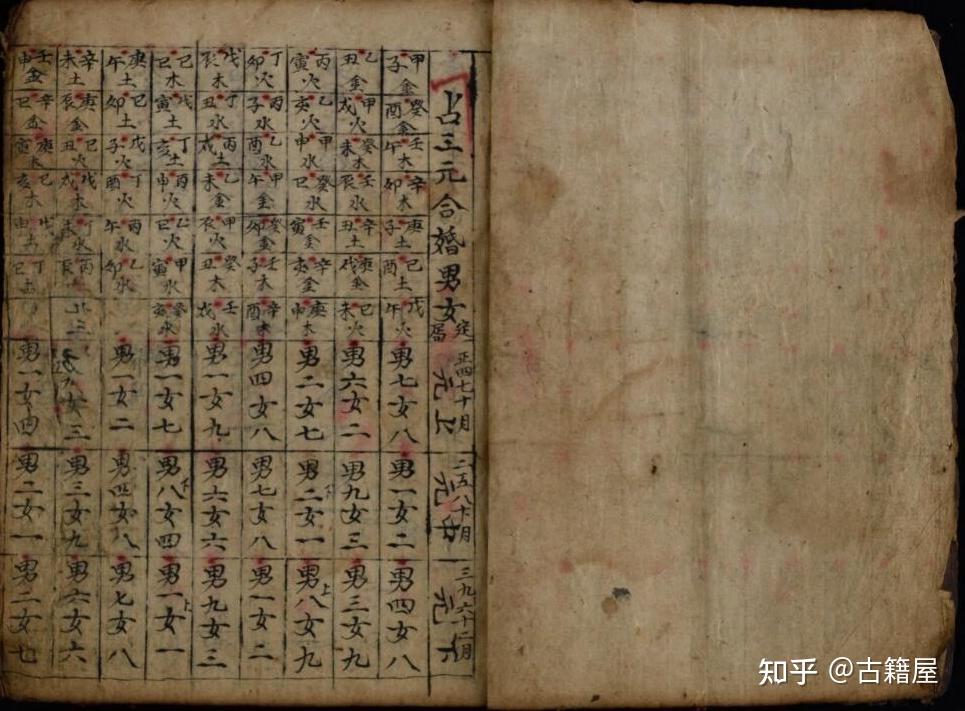 占三元合婚男女定局 正四七十月 上元 二五八十一月 中元 三九六十二月 下元
甲子金 癸酉金 壬午木 辛卯木 庚子土 己酉土 戊午火 男七女八 男一女二 男四女八
乙丑金 甲戌火 癸未木 壬辰水 辛丑土 庚戌金 己未火 男六女二 男九女三 男三女九
丙寅火 乙亥火 甲申水 癸巳水 壬寅金 辛亥金 庚申木 男二女七 男二下女一 男八上女九
丁卯火 丙子水 乙酉水 甲午金 癸卯金 壬子木 辛酉木 男四女八 男七女八 男一女二
戊辰木 丁丑水 丙戌土 乙未金 甲辰火 癸丑木 壬戌水 男一女九 男六女六 男九女三
己巳木 戊寅土 丁亥土 丙申火 乙巳火 甲寅水 癸亥水 男一女七 男八下女四 男一上女一
庚午土 己卯土 戊子火 丁酉火 丙午水 乙卯水 男一女二 男四女八 男七女八
辛未土 庚辰金 己丑火 戊戌木 丁未水 丙辰 女三 男三女九 男六女六
壬申金 辛巳金 庚寅木 己亥木 戊申土 丁巳土 男一女四 男二女一 男二女七
知乎 @古籍屋